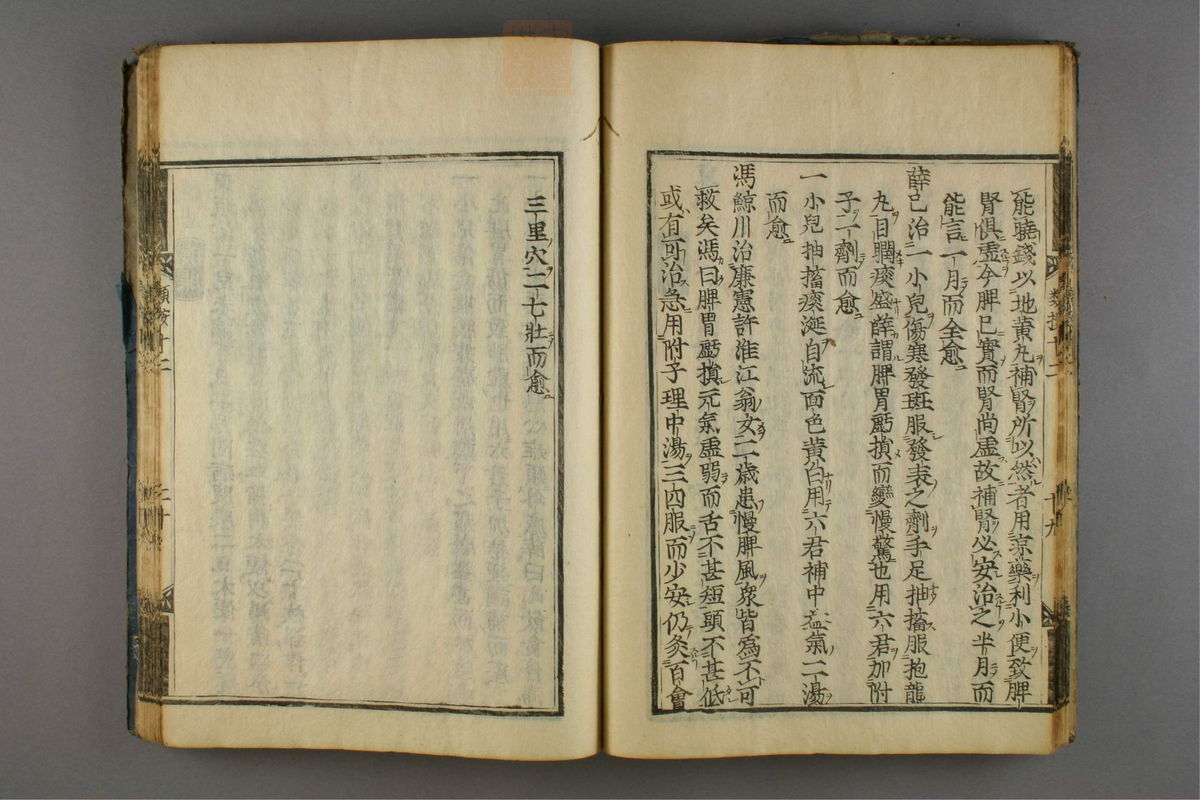 能曉錢以地黄丸補腎所以然者用凉藥利小便致脾
腎俱虚今脾已實而腎尚虚故補腎必安治之半月而
能言一月而全愈
薛己治一小兒傷寒發斑服發表之劑手足抽搐服抱龍
丸目瞤痰盛薛謂脾胃虧損而變慢驚也用六君加附
子二劑而愈
一小兒抽搐痰涎自流面色黄白用六君補中益氣二湯
而愈
馮鯨川治廉憲許淮江翁女二歳患慢脾風衆皆爲不可
救矣馮曰脾胃虧損元氣虚弱而舌不甚短頭不甚低
或有可治急用附子理中湯三四服而少安仍灸百會
三里穴二七壯而愈
類按十二
十九
類按十二
二十